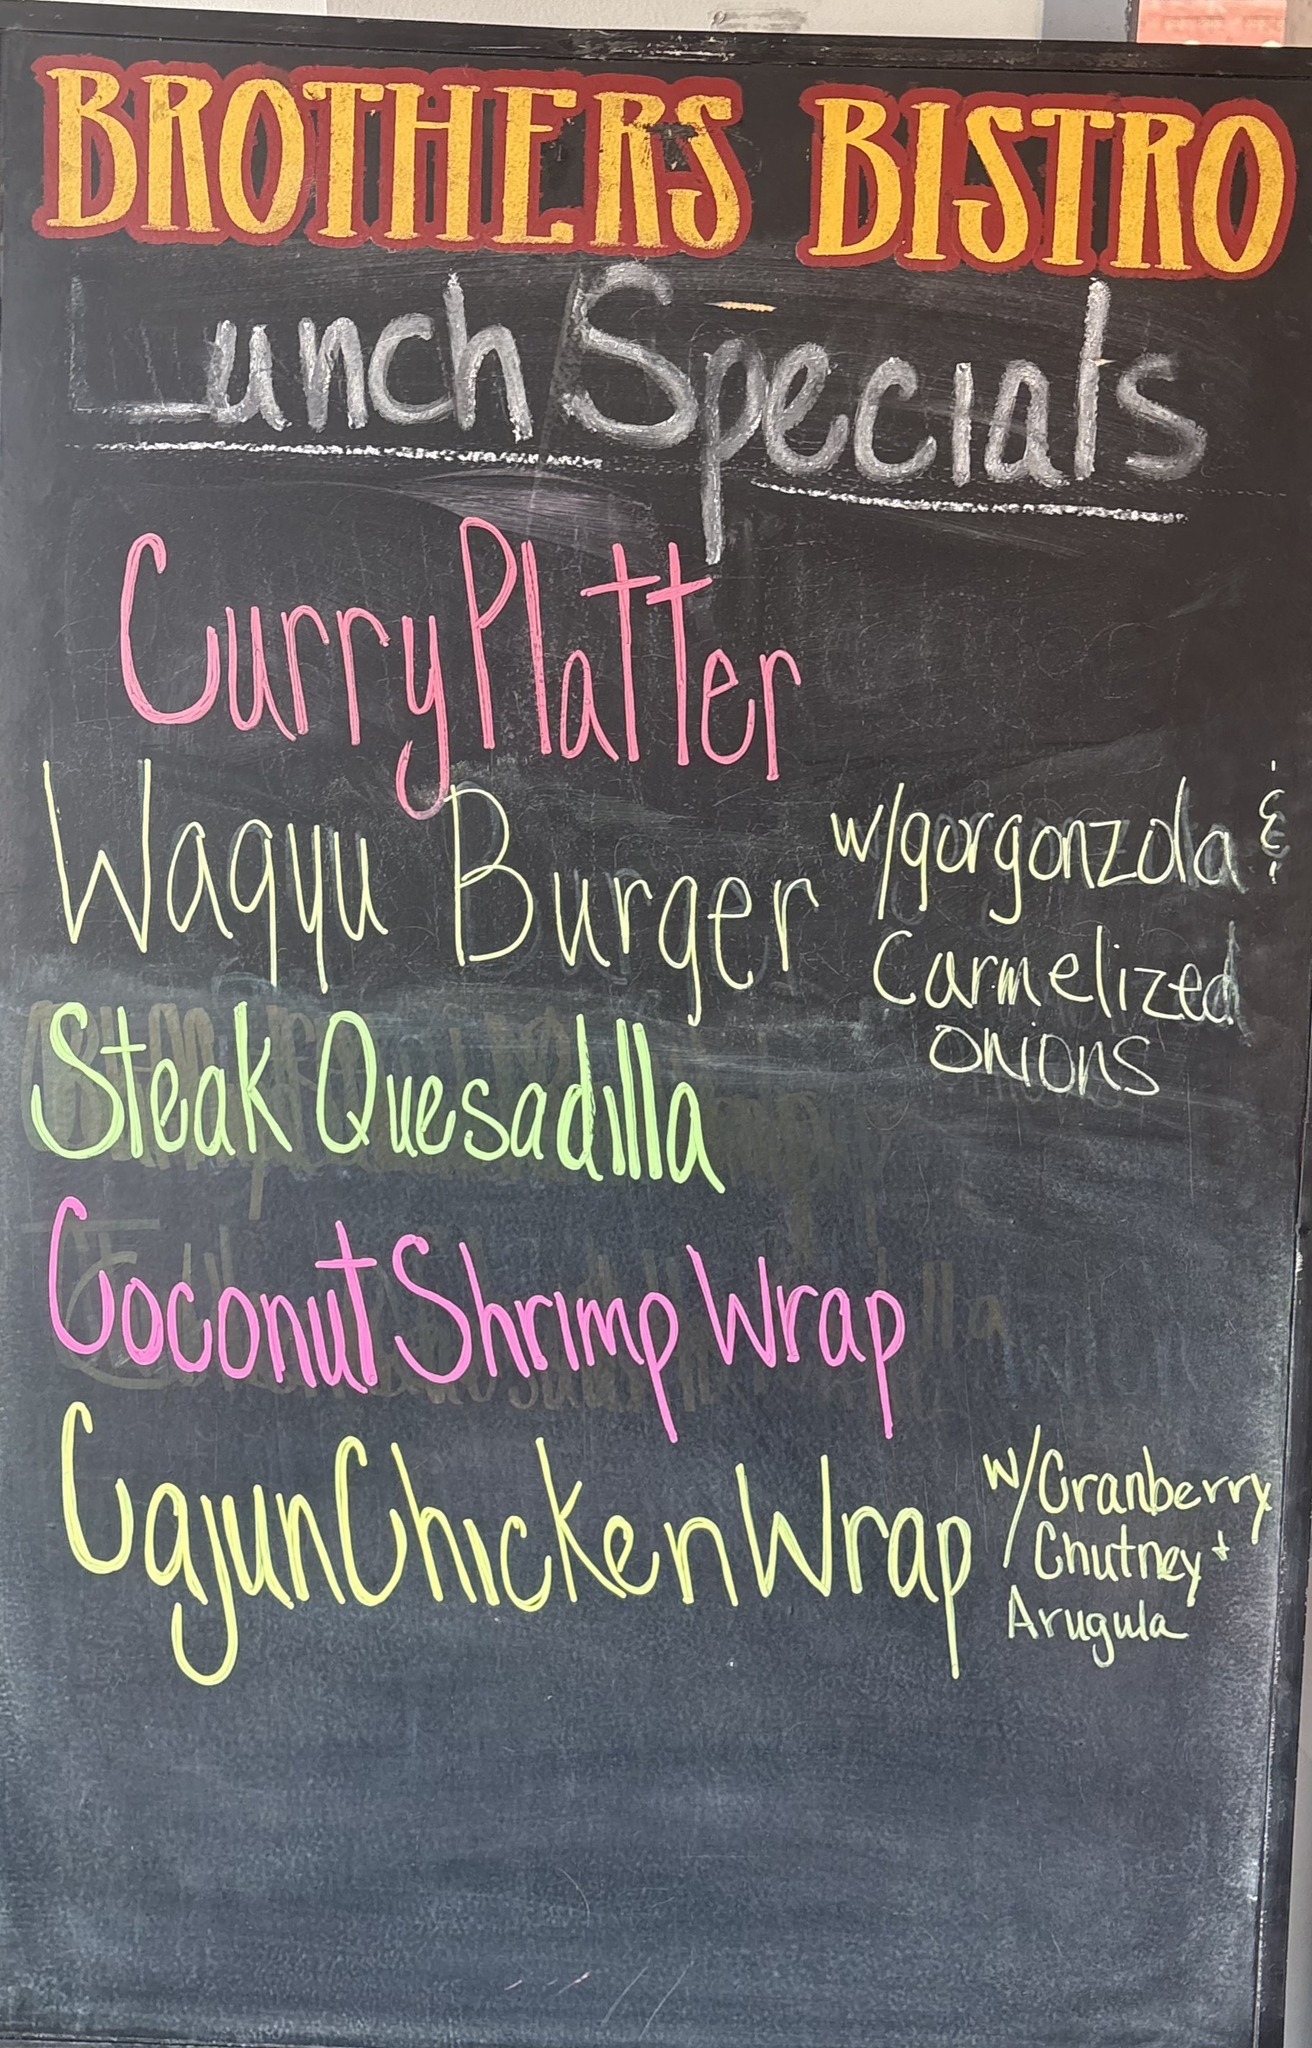 BROTHERS BISTRO
Lunch Specials
Curry Platter
Wagyu Burger w/gorgonzola &
Carmelized
onions
Steak Quesadilla
Coconut Shrimp Wrap
Cajun Chicken Wrap w/Cranberry
Chutney +
Arugula